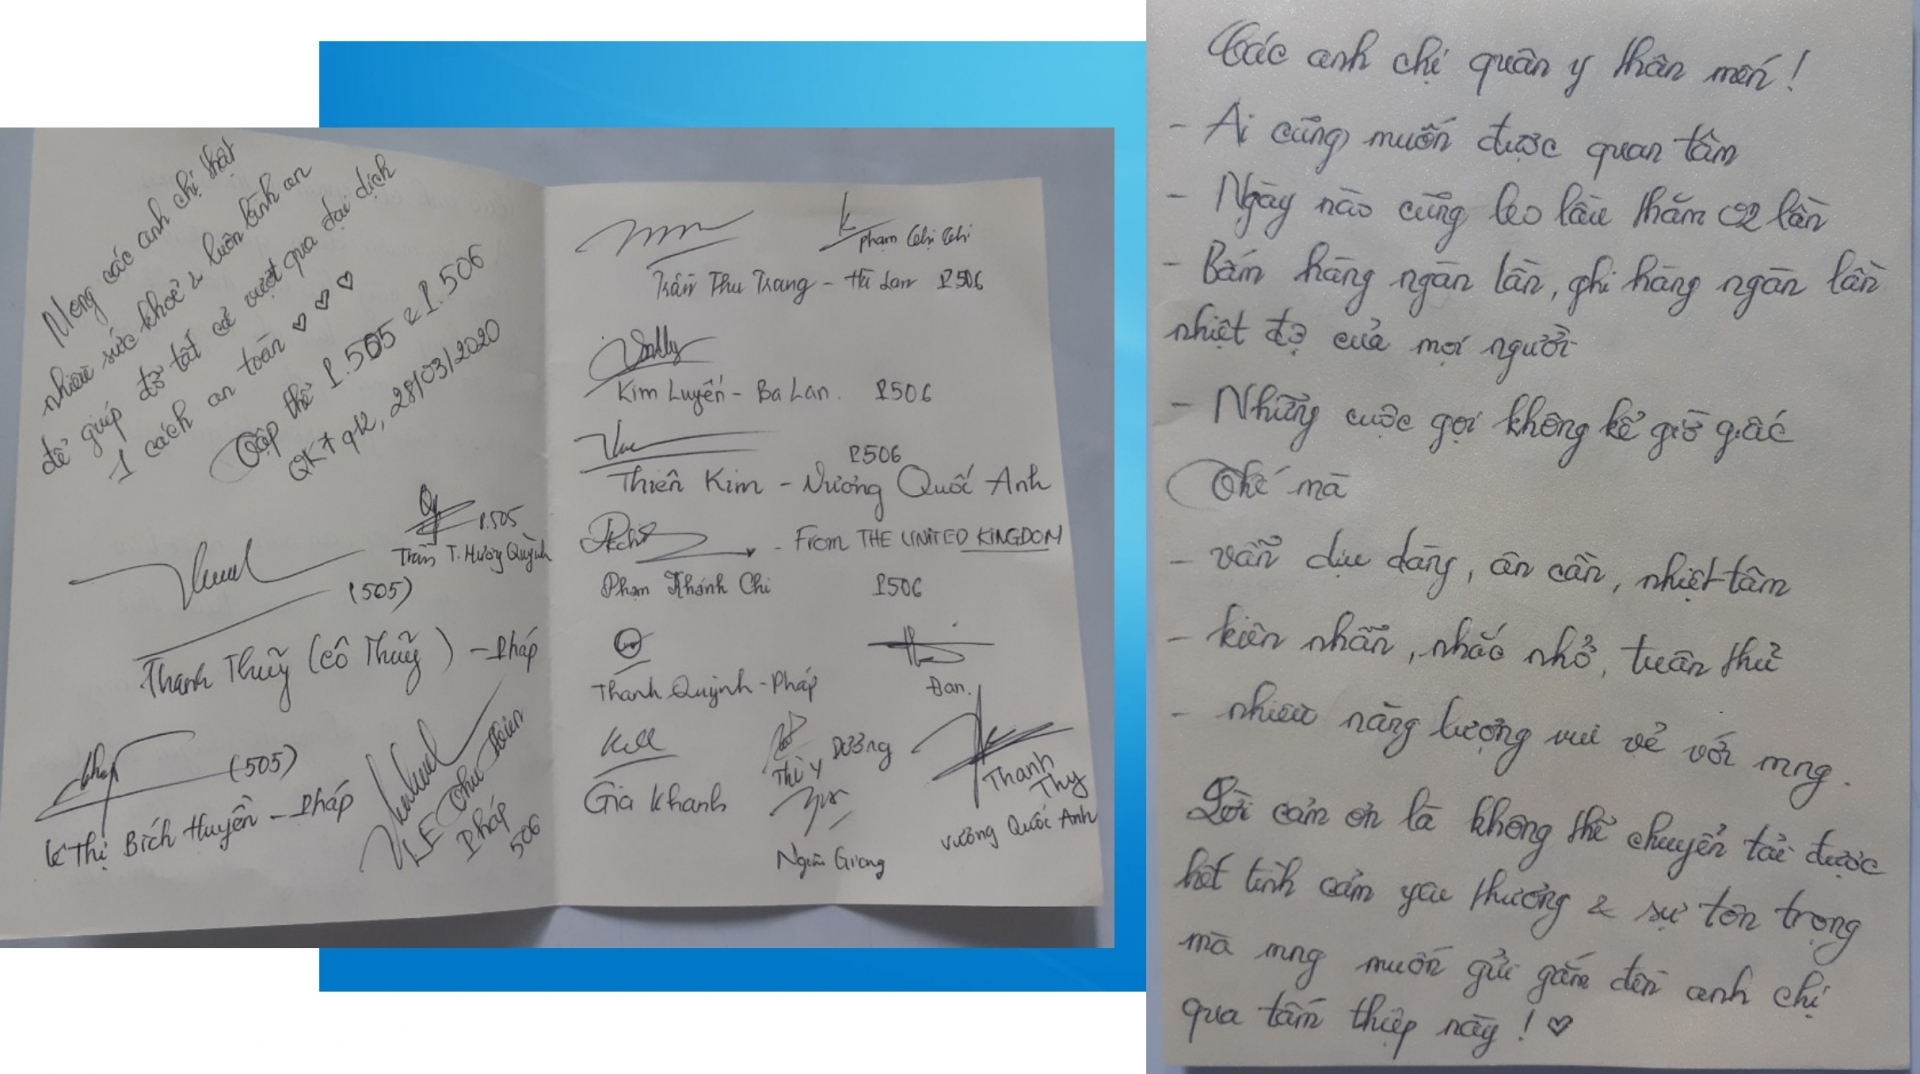 Mong các anh chị thật
nhiều sức khoẻ & luôn lành an
để giúp đỡ tất cả vượt qua đại dịch
1 cách an toàn ♡ ♡ ♡
Tập thể P.505 & P.506
QK7 q12, 28/03/2020
P.505
Trần T. Hương Quỳnh
(505)
Thanh Thuỷ (cô Thuỷ) - Pháp
(505)
Lê Thị Bích Huyền - Pháp
LE Thu Hiền
Pháp
506
Phạm Chị Chi
Trần Thu Trang - Hà Lan P506
Kim Luyến - Ba Lan. P506
P506
Thiên Kim - Vương Quốc Anh
- From THE UNITED KINGDOM
Phạm Khánh Chi P506
Thanh Quỳnh - Pháp
Đan.
Gia Khanh
Thùy Dương
Ngân Giang
Thanh
Thy
Vương Quốc Anh
Các anh chị quân y thân mến!
- Ai cũng muốn được quan tâm
- Ngày nào cũng leo lầu thăm 02 lần
- Bấm hàng ngàn lần, ghi hàng ngàn lần
nhiệt độ của mọi người
- Những cuộc gọi không kể giờ giấc
Thế mà
- vẫn dịu dàng, ân cần, nhiệt tâm
- kiên nhẫn, nhắc nhở, tuân thủ
- nhiều năng lượng vui vẻ với mng.
Lời cảm ơn là không thể chuyển tải được
hết tình cảm yêu thương & sự tôn trọng
mà mng muốn gửi gắm đến anh chị
qua tấm thiệp này! ♡